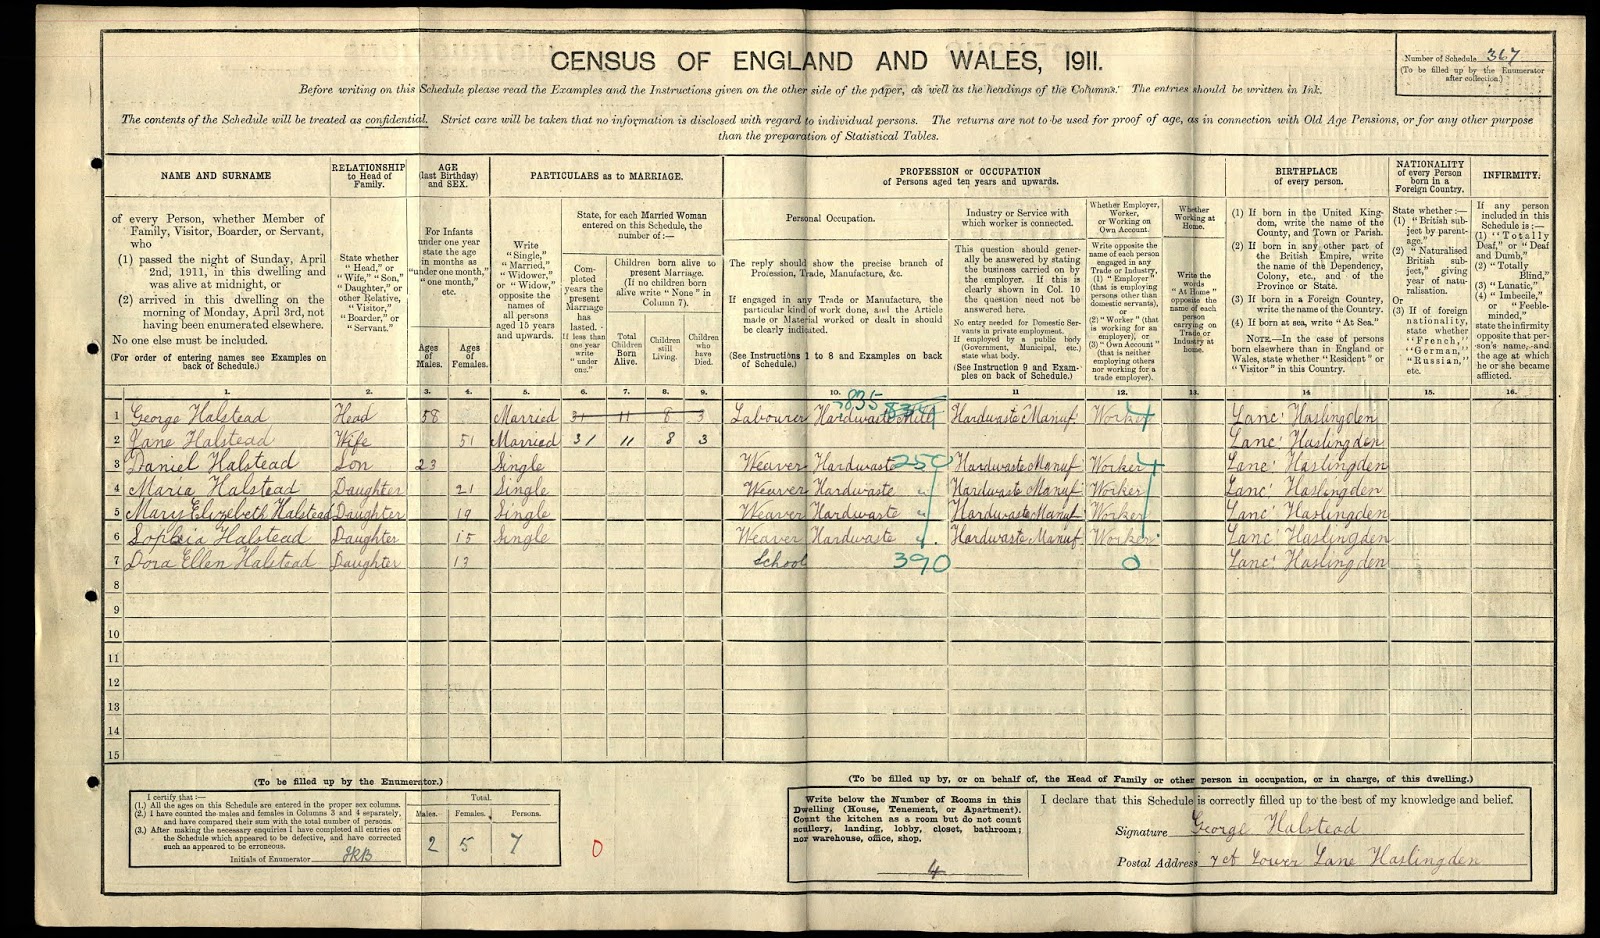 CENSUS OF ENGLAND AND WALES, 1911.
Number of Schedule 367
(To be filled up by the Enumerator
after collection.)
Before writing on this Schedule please read the Examples and the Instructions given on the other side of the paper, as well as the headings of the Columns. The entries should be written in Ink.
The contents of the Schedule will be treated as confidential. Strict care will be taken that no information is disclosed with regard to individual persons. The returns are not to be used for proof of age, as in connection with Old Age Pensions, or for any other purpose
than the preparation of Statistical Tables.
NAME AND SURNAME
of every Person, whether Member of
Family, Visitor, Boarder, or Servant,
who
(1) passed the night of Sunday, April
2nd, 1911, in this dwelling and
was alive at midnight, or
(2) arrived in this dwelling on the
morning of Monday, April 3rd, not
having been enumerated elsewhere.
No one else must be included.
(For order of entering names see Examples on
back of Schedule.)
RELATIONSHIP
to Head of
Family.
State whether
"Head," or
"Wife," "Son,"
"Daughter," or
other Relative,
"Visitor,"
"Boarder," or
"Servant."
AGE
(last Birthday)
and SEX.
For Infants
under one year
state the age
in months as
"under one month,"
"one month,"
etc.
Ages
of
Males.
Ages
of
Females.
PARTICULARS as to MARRIAGE.
Write
"Single,"
"Married,"
"Widower,"
or "Widow,"
opposite the
names of
all persons
aged 15 years
and upwards.
State, for each Married Woman
entered on this Schedule, the
number of:—
Completed
years the
present
Marriage
has
lasted.
If less than
one year
write
"under
one."
Children born alive to
present Marriage.
(If no children born
alive write "None" in
Column 7).
Total
Children
Born
Alive.
Children
still
Living.
Children
who
have
Died.
PROFESSION or OCCUPATION
of Persons aged ten years and upwards.
Personal Occupation.
The reply should show the precise branch of
Profession, Trade, Manufacture, &c.
If engaged in any Trade or Manufacture, the
particular kind of work done, and the Article
made or Material worked or dealt in should
be clearly indicated.
(See Instructions 1 to 8 and Examples on back
of Schedule.)
Industry or Service with
which worker is connected.
This question should generally
be answered by stating
the business carried on by
the employer. If this is
clearly shown in Col. 10
the question need not be
answered here.
No entry needed for Domestic Servants
in private employment.
If employed by a public body
(Government, Municipal, etc.)
state what body.
(See Instruction 9 and Examples
on back of Schedule.)
Whether Employer,
Worker,
or Working on
Own Account.
Write opposite the
name of each person
engaged in any
Trade or Industry,
(1) "Employer"
(that is employing
persons other than
domestic servants),
or
(2) "Worker" (that
is working for an
employer), or
(3) "Own Account"
(that is neither
employing others
nor working for a
trade employer).
Whether
Working at
Home.
Write the
words
"At Home"
opposite the
name of each
person
carrying on
Trade or
Industry at
home.
BIRTHPLACE
of every person.
(1) If born in the United Kingdom,
write the name of the
County, and Town or Parish.
(2) If born in any other part of
the British Empire, write
the name of the Dependency,
Colony, etc., and of the
Province or State.
(3) If born in a Foreign Country,
write the name of the Country.
(4) If born at sea, write "At Sea."
NOTE.—In the case of persons
born elsewhere than in England or
Wales, state whether "Resident" or
"Visitor" in this Country.
NATIONALITY
of every Person
born in a
Foreign Country.
State whether:—
(1) "British subject
by parentage."
(2) "Naturalised
British
subject,"
giving
year of
naturalisation.
Or
(3) If of foreign
nationality,
state whether
"French,"
"German,"
"Russian,"
etc.
INFIRMITY.
If any person
included in this
Schedule is:—
(1) "Totally
Deaf," or "Deaf
and Dumb,"
(2) "Totally
Blind,"
(3) "Lunatic,"
(4) "Imbecile,"
or "Feeble-
minded,"
state the infirmity
opposite that person's
name, and
the age at which
he or she became
afflicted.
1. 2. 3. 4. 5. 6. 7. 8. 9. 10. 11 12. 13. 14 15. 16.
835
1 George Halstead Head 58 Married 31 11 8 3 Labourer Hardwaste Mill Hardwaste Manuf. Worker Lanc' Haslingden
2 Jane Halstead Wife 51 Married 31 11 8 3 Lanc' Haslingden
3 Daniel Halstead Son 23 Single Weaver Hardwaste 250 Hardwaste Manuf Worker Lanc' Haslingden
4 Maria Halstead Daughter 21 Single Weaver Hardwaste Hardwaste Manuf Worker Lanc' Haslingden
5 Mary Elizebeth Halstead Daughter 19 Single Weaver Hardwaste Hardwaste Manuf Worker Lanc' Haslingden
6 Sophia Halstead Daughter 15 Single Weaver Hardwaste Hardwaste Manuf. Worker Lanc' Haslingden
7 Dora Ellen Halstead Daughter 13 School 390 0 Lanc' Haslingden
8
9
10
11
12
13
14
15
(To be filled up by the Enumerator.)
I certify that:—
(1.) All the ages on this Schedule are entered in the proper sex columns.
(2.) I have counted the males and females in Columns 3 and 4 separately,
and have compared their sum with the total number of persons.
(3.) After making the necessary enquiries I have completed all entries on
the Schedule which appeared to be defective, and have corrected
such as appeared to be erroneous.
Initials of Enumerator
Total.
Males. Females. Persons.
2 5 7
0
(To be filled up by, or on behalf of, the Head of Family or other person in occupation, or in charge, of this dwelling.)
Write below the Number of Rooms in this
Dwelling (House, Tenement, or Apartment).
Count the kitchen as a room but do not count
scullery, landing, lobby, closet, bathroom;
nor warehouse, office, shop.
4
I declare that this Schedule is correctly filled up to the best of my knowledge and belief.
Signature George Halstead
Postal Address Lower Lane Haslingden